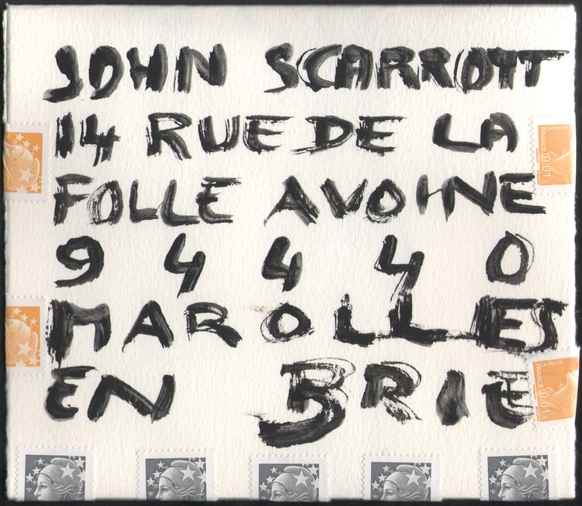 JOHN SCARROTT
14 RUE DE LA
FOLLE AVOINE
94440
MAROLLES
EN BRIE